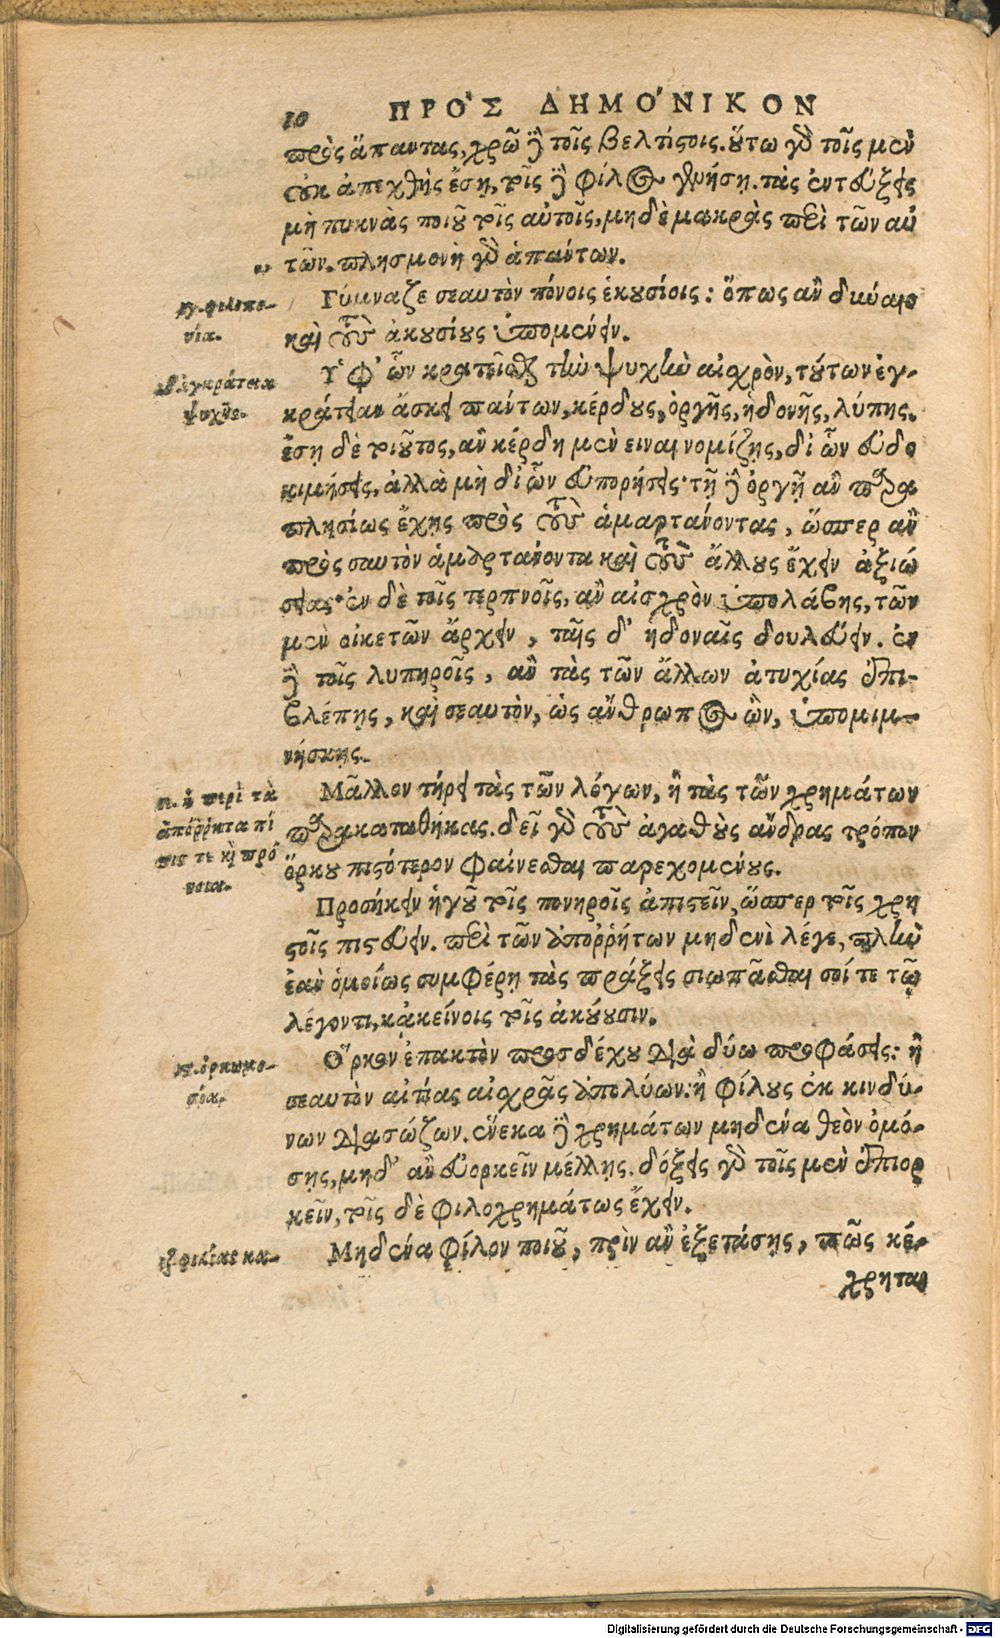 10 ΠΡΟ῾Σ ΔΗΜΟ´ΝΙΚΟΝ
πρὸς ἅπαντας, χρῶ δὲ τοῖς βελτίστοις. οὕτω γὰρ τοῖς μὲν
οὐκ ἀπεχθὴς ἔσῃ, τοῖς δὲ φίλος γενήσῃ. τὰς ἐντεύξεις
μὴ πυκνὰς ποιοῦ τοῖς αὐτοῖς, μηδὲ μακρὰς περὶ τῶν αὐ
τῶν. πλησμονὴ γὰρ ἁπάντων.
π. φιλοπο-
νία.
Γύμναζε σεαυτὸν πόνοις ἑκουσίοις: ὅπως ἂν δύναιο
καὶ τοὺς ἀκουσίους ὑπομένειν.
ἐγκράτεια
ψυχῆς.
Υ῾φ' ὧν κρατεῖσθαι τὴν ψυχὴν αἰσχρὸν, τούτων ἐγ-
κράτειαν ἄσκει πάντων, κέρδους, ὀργῆς, ἡδονῆς, λύπης.
ἔσῃ δὲ τοιοῦτος, ἂν κέρδη μὲν εἶναι νομίζῃς, δι' ὧν εὐδο
κιμήσεις, ἀλλὰ μὴ δι' ὧν εὐπορήσεις· τῇ δὲ ὀργῇ ἂν παρα
πλησίως ἔχῃς πρὸς τοὺς ἁμαρτάνοντας, ὥσπερ ἂν
πρὸς σαυτὸν ἁμαρτάνοντα καὶ τοὺς ἄλλους ἔχειν ἀξιώ
σειας· ἐν δὲ τοῖς τερπνοῖς, ἂν αἰσχρὸν ὑπολάβῃς, τῶν
μὲν οἰκετῶν ἄρχειν, ταῖς δ' ἡδοναῖς δουλεύειν. ἐν
δὲ τοῖς λυπηροῖς, ἂν τὰς τῶν ἄλλων ἀτυχίας ἐπι-
βλέπῃς, καὶ σεαυτὸν, ὡς ἄνθρωπος ὢν, ὑπομιμ-
νήσκῃς.
π. ἡ περὶ τὰ
ἀπόῤῥητα πί
στις τε κὶ πρό
νοια.
Μᾶλλον τήρει τὰς τῶν λόγων, ἢ τὰς τῶν χρημάτων
παρακαταθήκας. δεῖ γὰρ τοὺς ἀγαθοὺς ἄνδρας τρόπον
ὅρκου πιστότερον φαίνεσθαι παρεχομένους.
Προσήκειν ἡγοῦ τοῖς πονηροῖς ἀπιστεῖν, ὥσπερ τοῖς χρη
στοῖς πιστεύειν. περὶ τῶν ἀποῤῥήτων μηδενὶ λέγε, πλὴν
ἐὰν ὁμοίως συμφέρῃ τὰς πράξεις σιωπᾶσθαι σοί τε τῷ
λέγοντι, κἀκείνοις τοῖς ἀκούουσιν.
π. ὁρκωμο-
σία.
Ο῞ρκον ἐπακτὸν προσδέχου διὰ δύω προφάσεις: ἢ
σεαυτὸν αἰτίας αἰσχρᾶς ἀπολύων: ἢ φίλους ἐκ κινδύ-
νων διασώζων. ἕνεκα δὲ χρημάτων μηδένα θεὸν ὀμό-
σῃς, μηδ' ἂν εὐορκεῖν μέλλῃς. δόξεις γὰρ τοῖς μὲν ἐπιορ
κεῖν, τοῖς δὲ φιλοχρημάτως ἔχειν.
φιλίας κα-
Μηδένα φίλον ποιοῦ, πρὶν ἂν ἐξετάσῃς, πῶς κέ-
χρηται
Digitalisierung gefördert durch die Deutsche Forschungsgemeinschaft - DFG